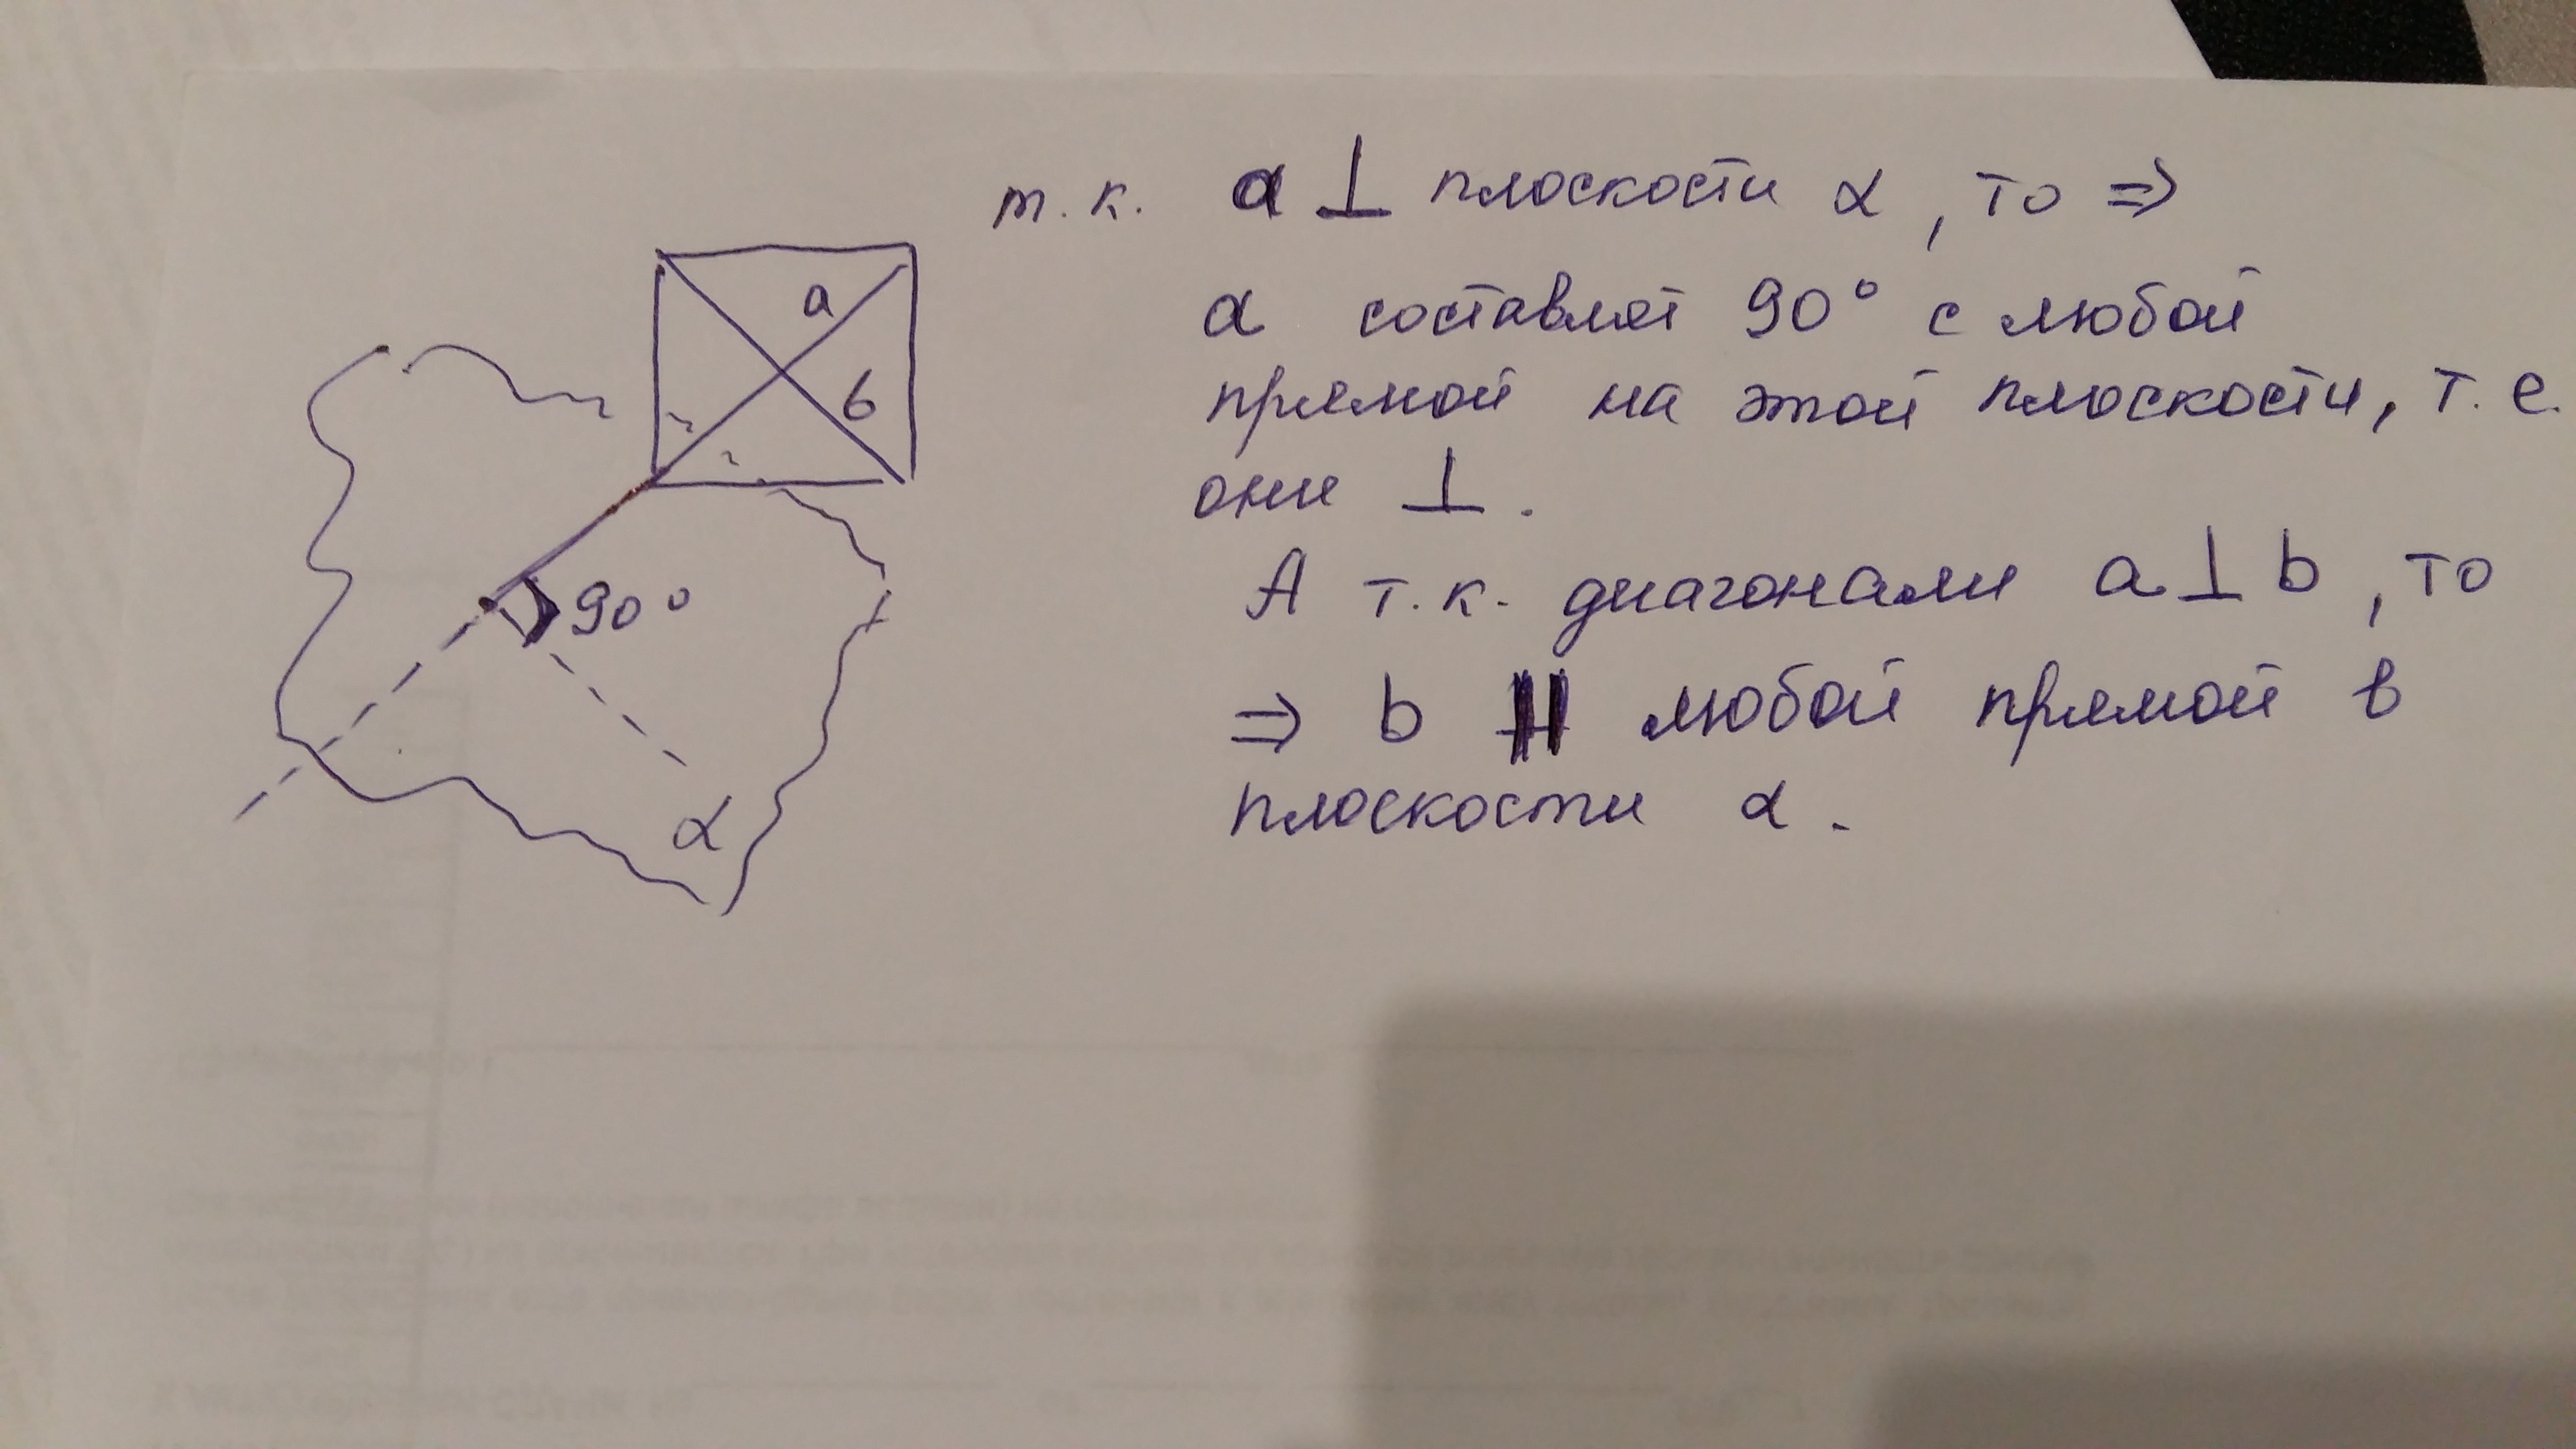 т.к. a ⊥ плоскости α, то ⇒
α составлят 90° с любой
прямой на этой плоскости, т.е.
они ⊥.
А т.к. диагонали a ⊥ b, то
⇒ b || любой прямой в
плоскости α.
a
b
90°
α